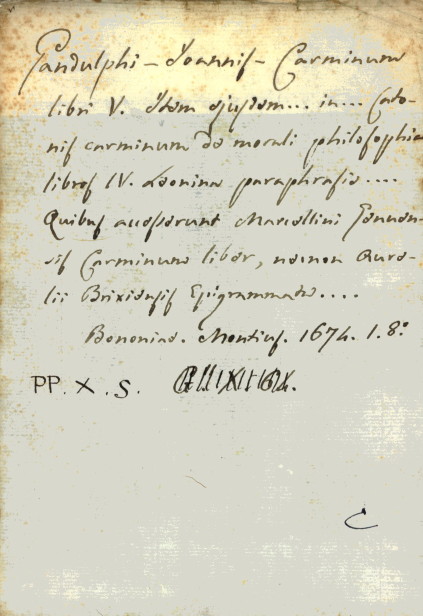 Gandulphi - Joannis - Carminum
libri V. Item ejusdem... in... Cato-
nis carminum de morali philosophia
libros IV. Leonina paraphrasis....
Quibus accesserunt Marcellini Genuen-
sis Carminum liber, necnon Aure-
lii Brixiensis Epigrammata....
Bononiae. Montius. 1674. 1. 8º
PP. X. S.
C